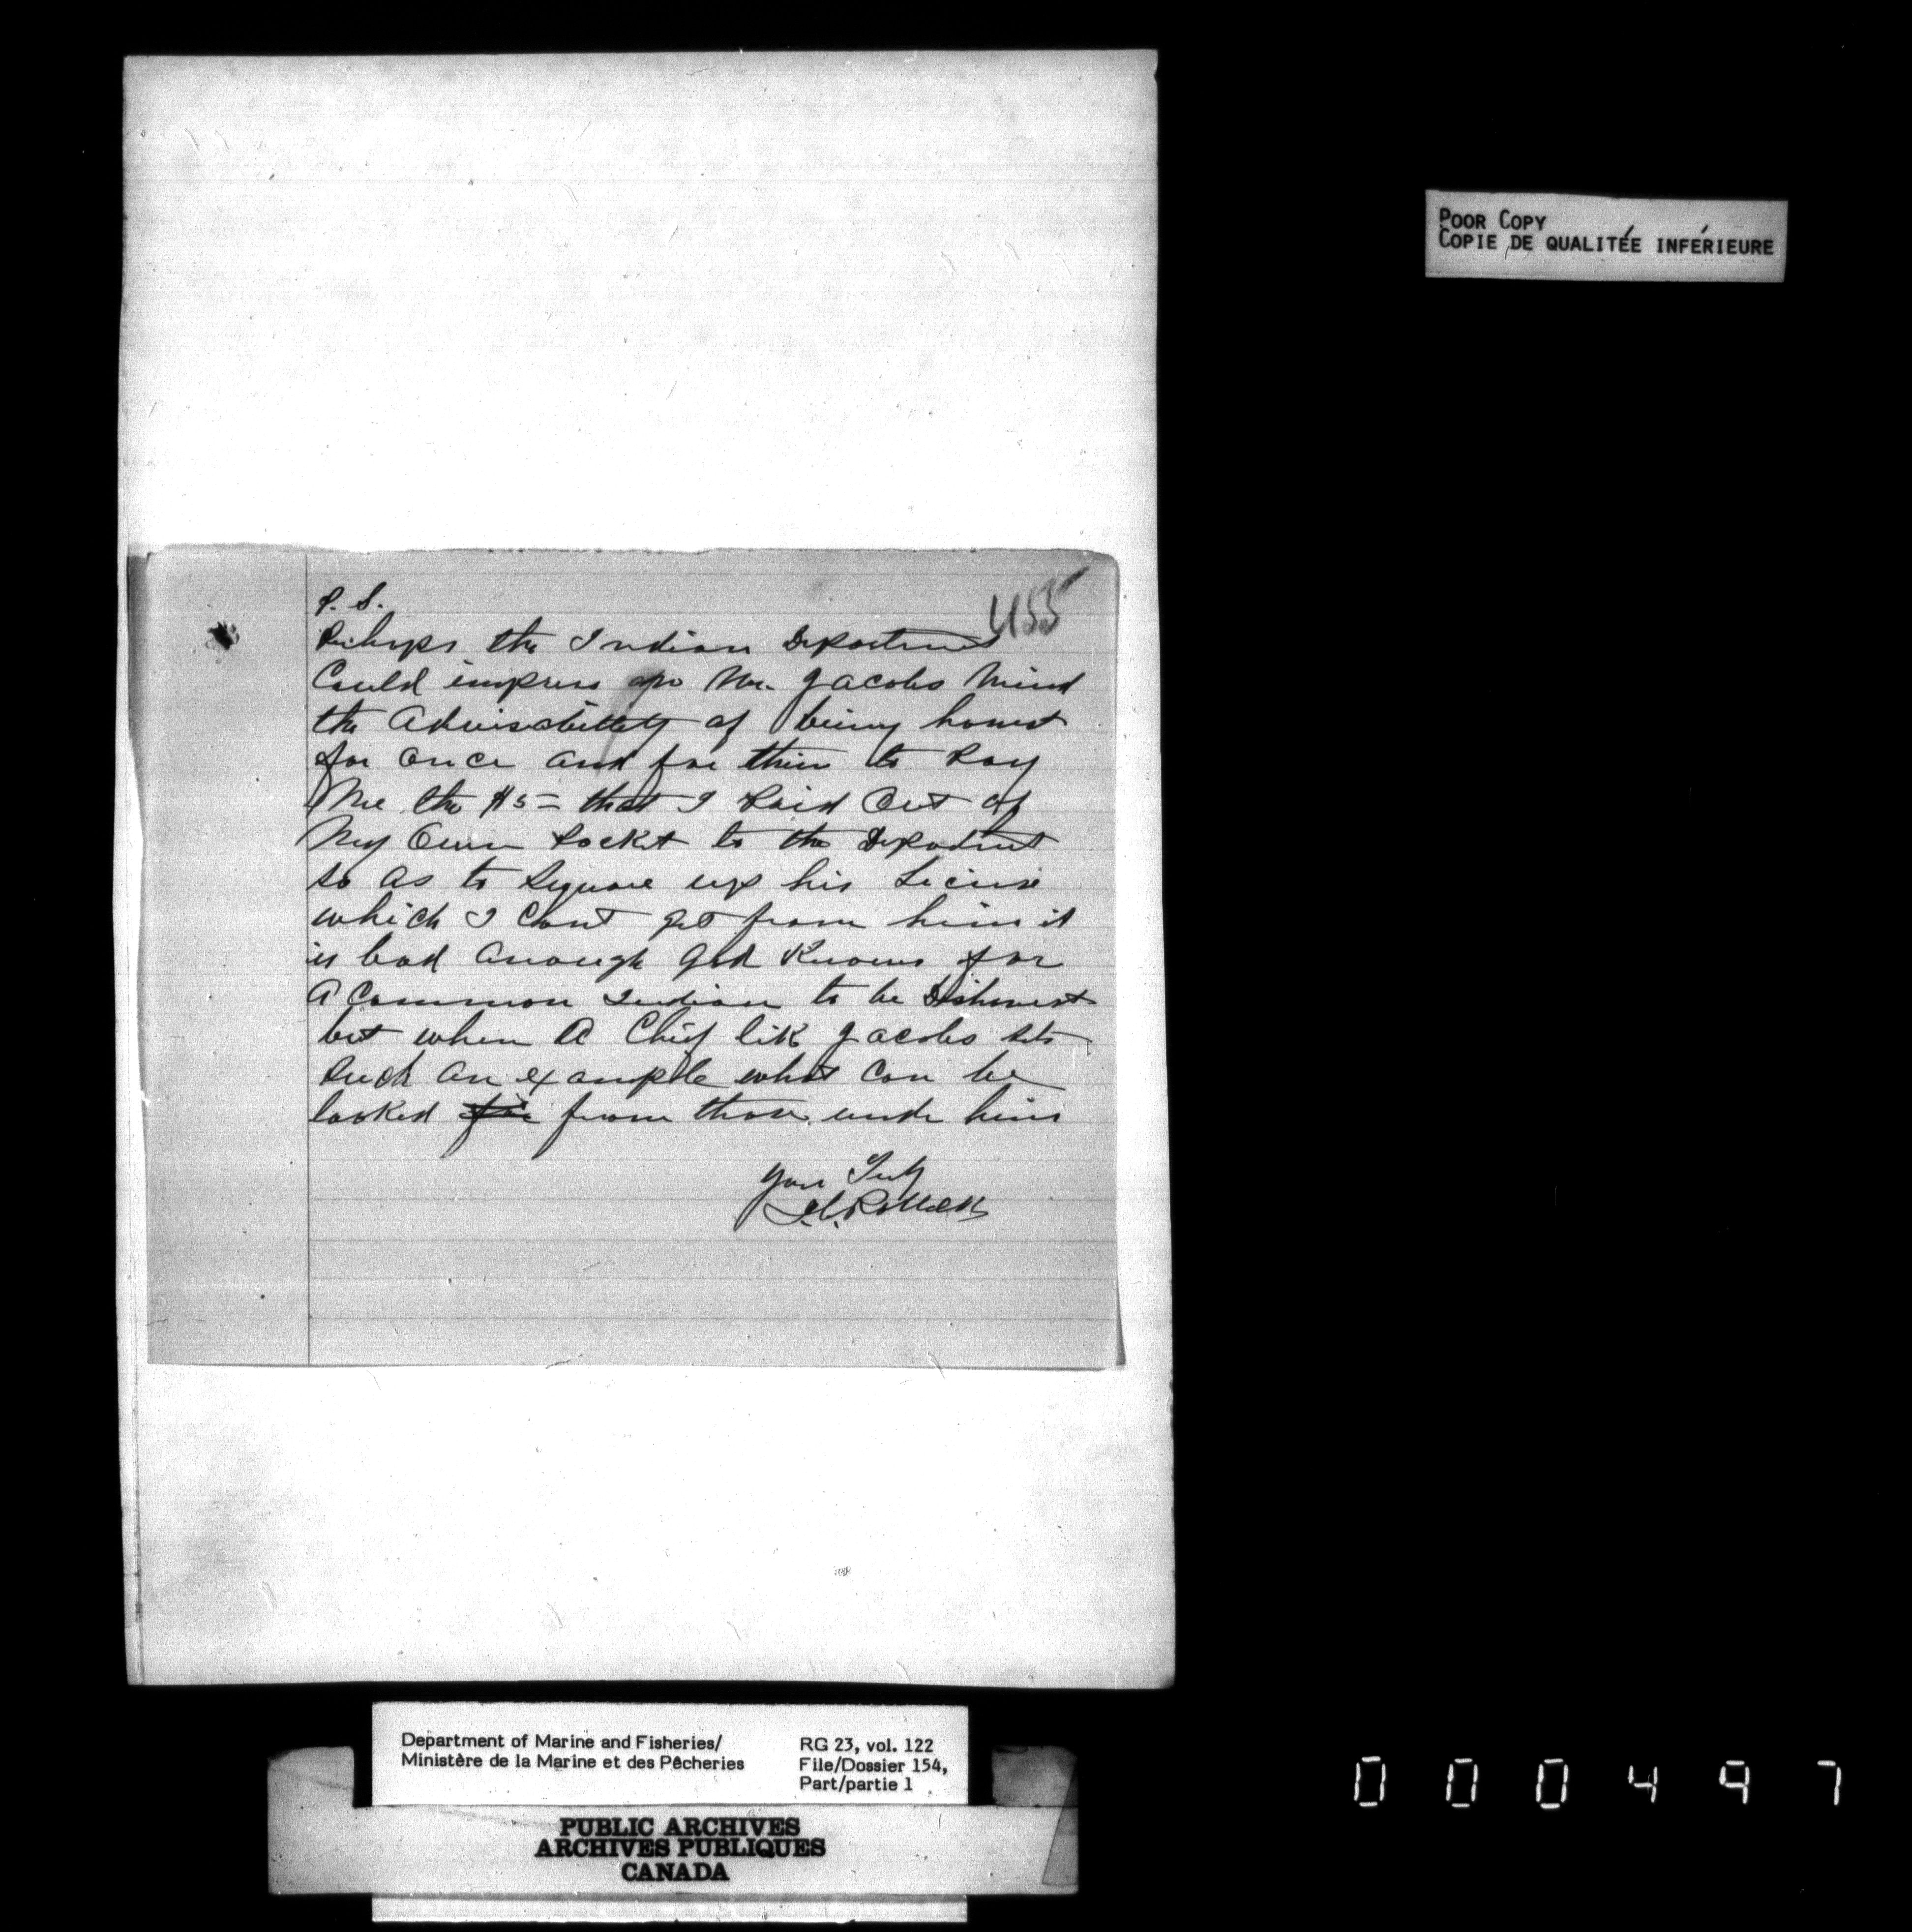 POOR COPY
COPIE DE QUALITÉE INFÉRIEURE
455
P. S.
Perhaps the Indian Department
Could impress upo Mr. Jacobs Mind
the Adviseabillety of being honest
for once and for thim to Pay
Me the $5= that I Paid Out of
My Own Pocket to the Department
so as to Square up his License
which I Cant get from him it
is bad anough God Knows for
A Common Indian to be Dishonest
but when A Chief like Jacobs sets
Such an example what can be
looked for from those under him
Your Truly
Department of Marine and Fisheries/
Ministère de la Marine et des Pêcheries
RG 23, vol. 122
File/Dossier 154,
Part/partie 1
PUBLIC ARCHIVES
ARCHIVES PUBLIQUES
CANADA
000497